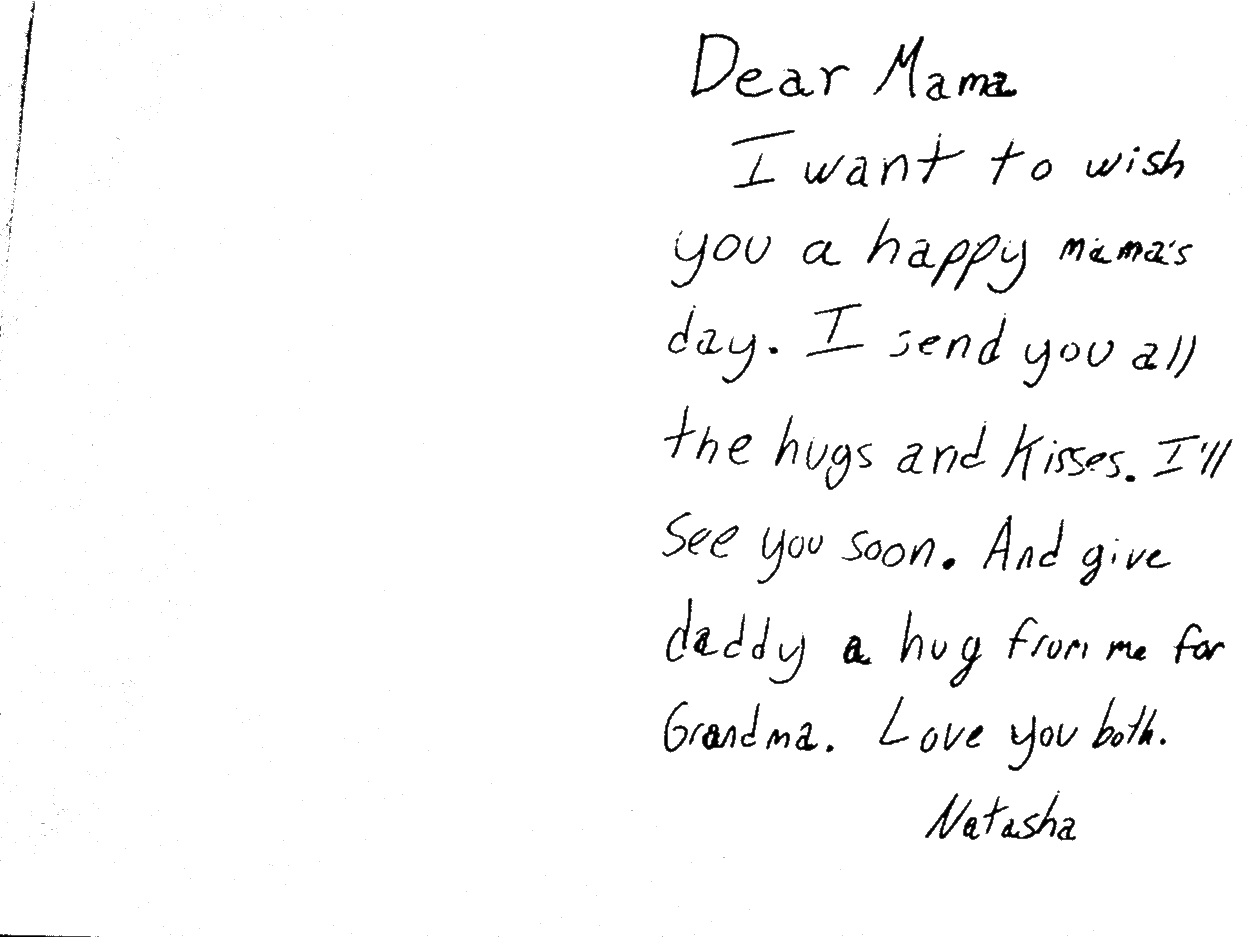 Dear Mama
I want to wish
you a happy mama's
day. I send you all
the hugs and kisses. I'll
See you soon. And give
daddy a hug from me for
Grandma. Love you both.
Natasha